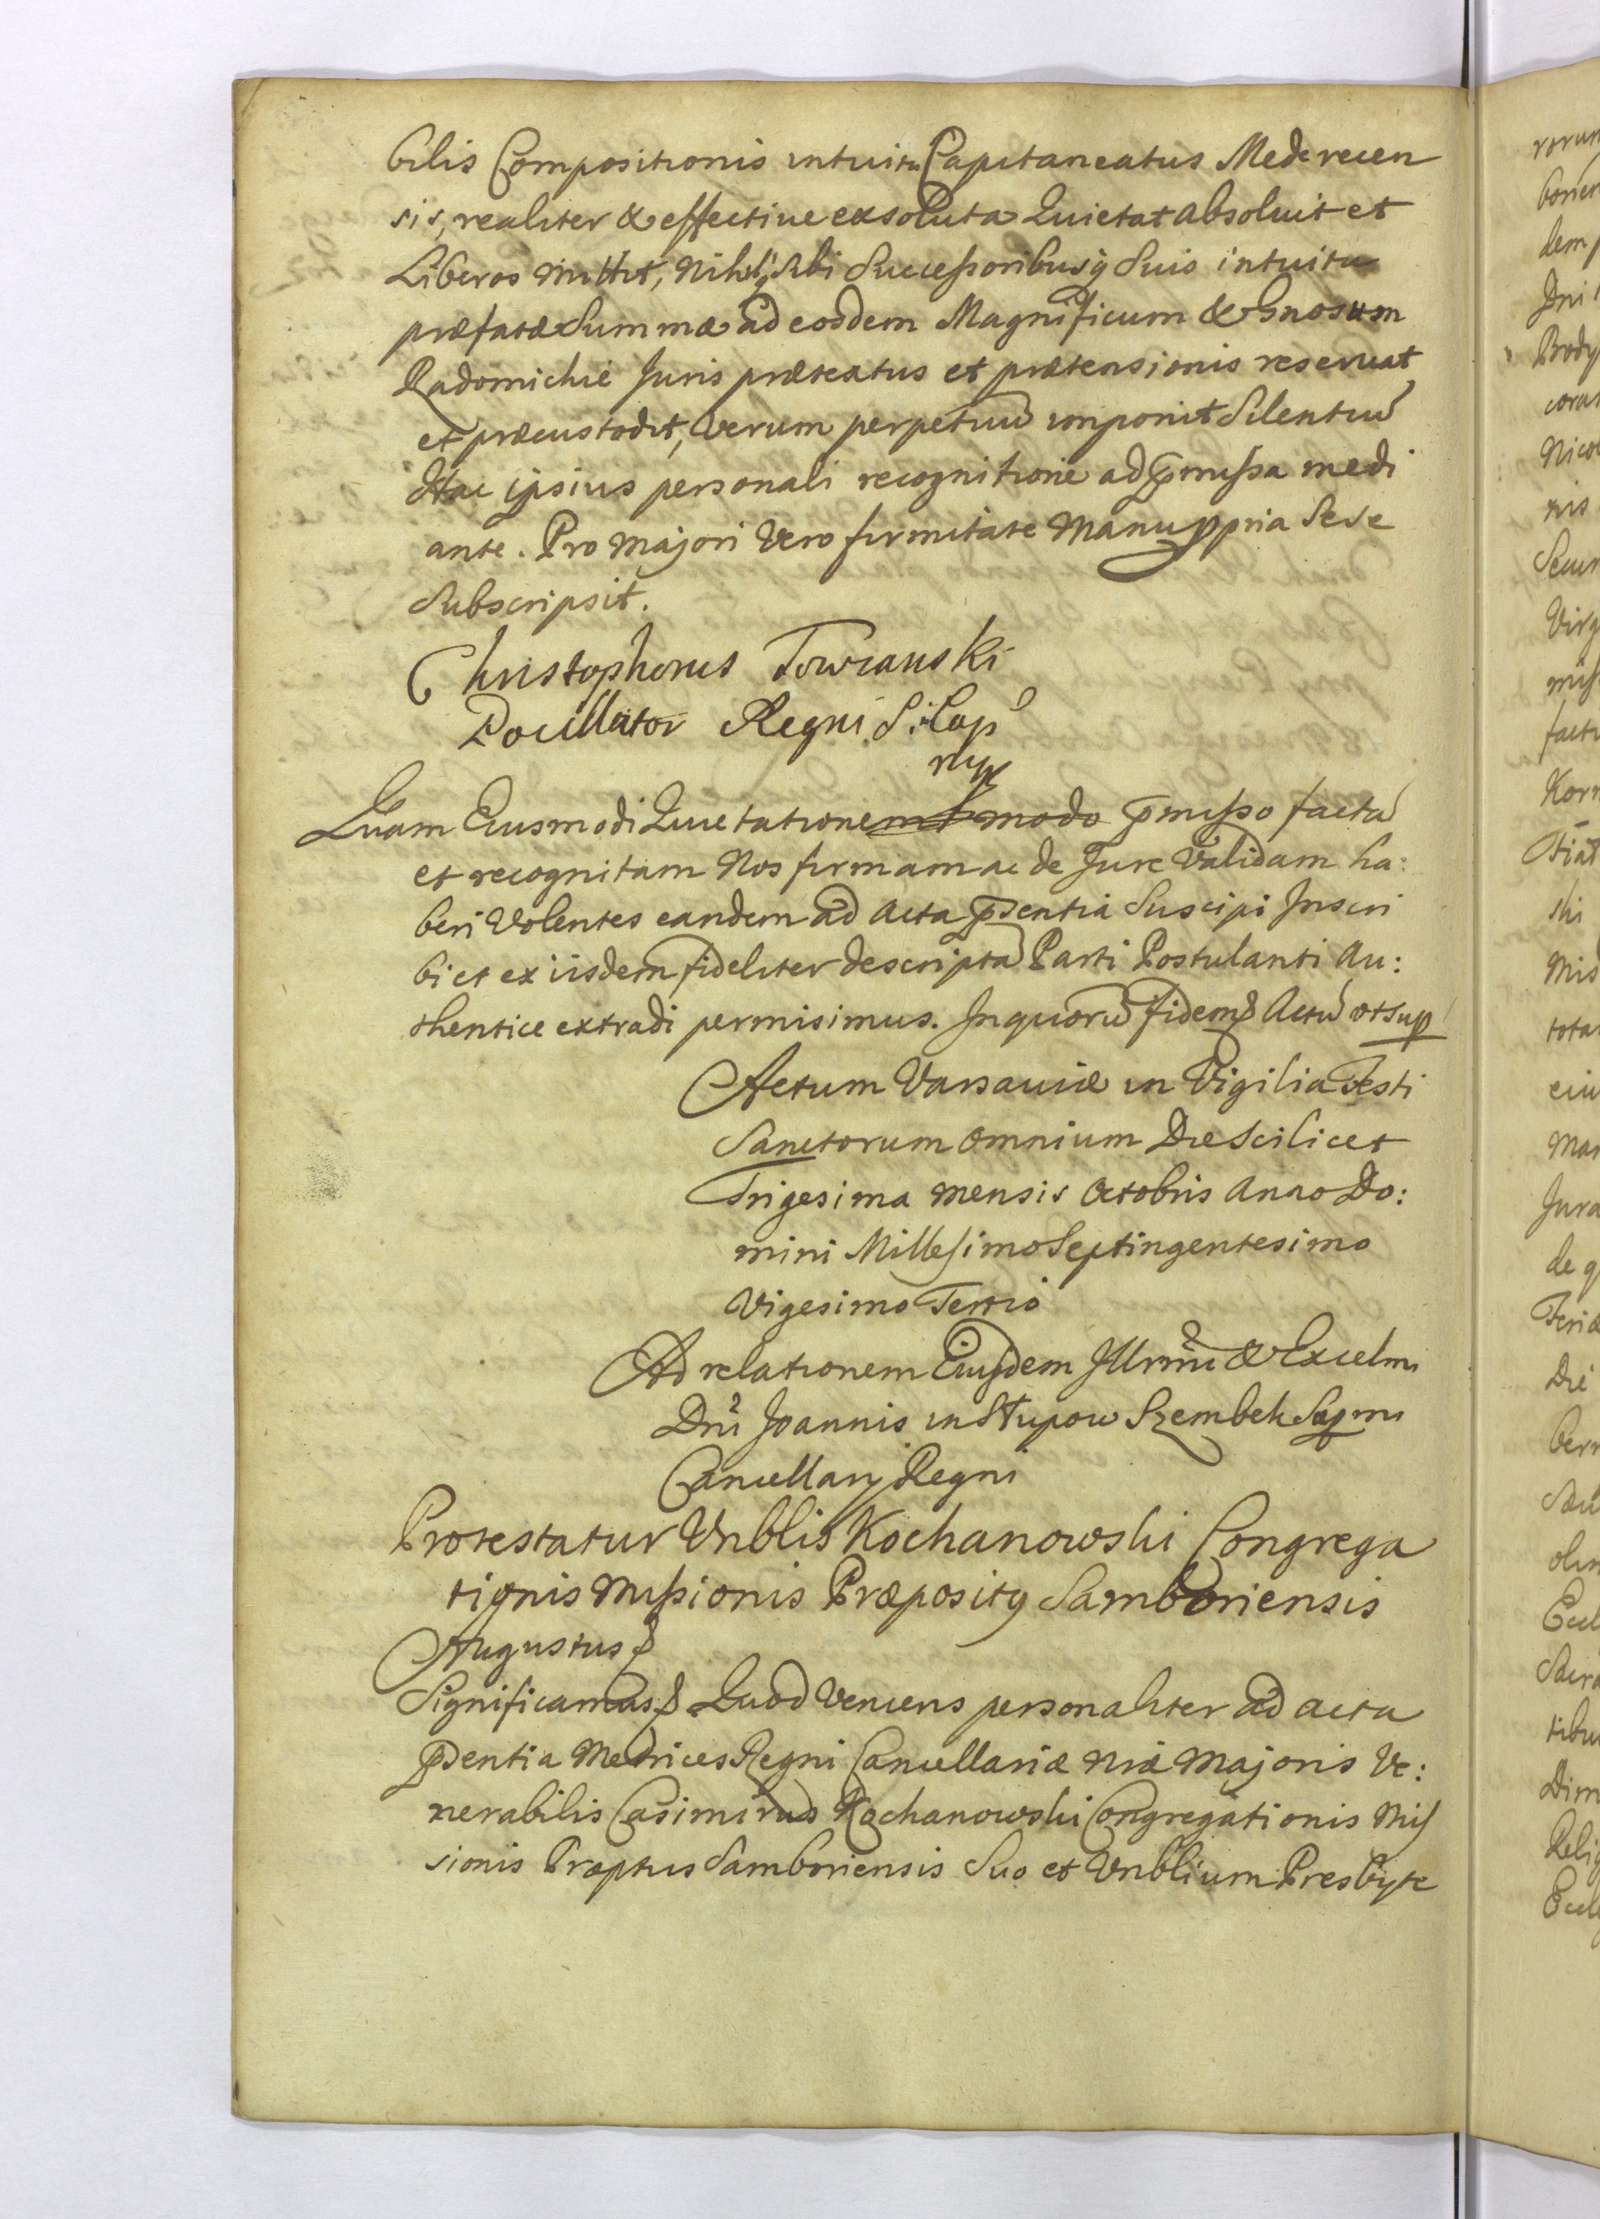 bilis Compositionis intuitu Capitaneatus Mederecen
sis, realiter & effective exsoluta Quietat absoluit et
Liberos mittit, Nihilq Sibi Successoribusq Suis intuitu
præfatæ Summæ ad eosdem Magnificum & Gnosum
Radomickie Juris prætextus et prætensionis reseruat
et præcustodit, Verum perpetuū imponit Silentiū
Hac ipsius personali recognitione ad p̄missa medi
ante. Pro Majori Vero firmitate Manu ppria Sese
Subscripsit.
Christophorus Towianski
Pocillator Regni S: Cap
mp
Quam Eiusmodi Quietationem modo p̄misso factā
et recognitam Nos firmam ac de Jure Validam ha:
beri Volentes eandem ad Acta p̄sentia Suscipi Inscri
bi et ex iisdem fideliter descriptā Parti Postulanti Au:
thentice extradi permisimus. In quorū fidem Actū ut sup
Actum Varsaviæ in Vigilia Festi
Sanctorum Omnium Die Scilicet
Trigesima Mensis Octobris Anno Do:
mini Millesimo Septingentesimo
Vigesimo Tertio
Ad relationem Eiusdem Illrmi & Excelmi
Dni Joannis in Słupow Szembek Supmi
Cancellarij Regni
Protestatur Vnblis Kochanowski Congrega
tionis Missionis Præposity Samboriensis
Augustus
Significamus Quod Veniens personaliter ad acta
p̄sentia Metrices Regni Cancellariæ Nræ Majoris Ve:
nerabilis Casimirus Kochanowski Congregationis Mis
sionis Præptus Samboriensis Suo et Vnblium Presbyte